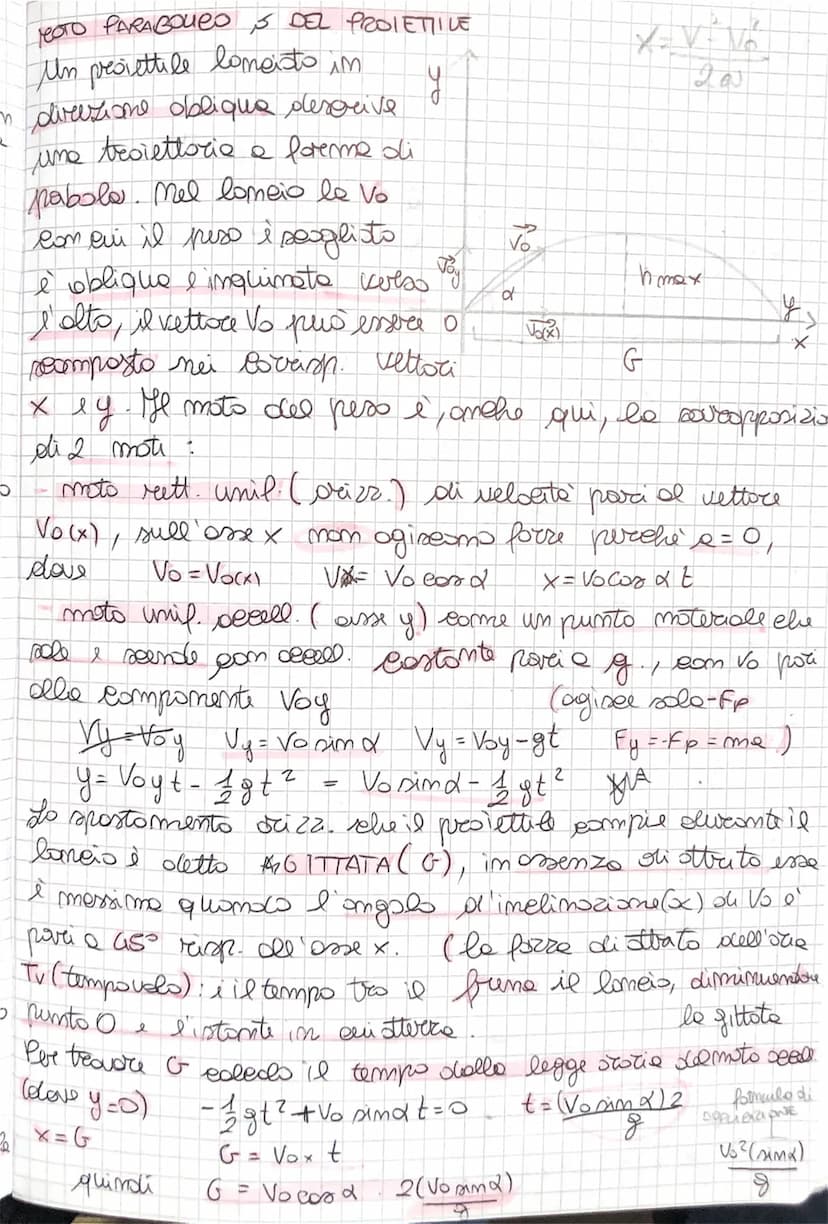 MOTO PARABOLICO, DEL PROIETTILE
x = V² - V₀² / 2a
Un proiettile lanciato in
direzione obliqua descrive
una traiettoria a forma di
pabola. Nel lancio la V₀
con cui il peso è scagliato
è obliqua e inclinata verso
l'alto, il vettore V₀ può essere
scomposto nei corrisp. vettori
y V₀ V₀y α h max y 0 V₀(x) x G
x e y. Il moto del peso è, anche qui, la sovrapposizio
di 2 moti :
- moto rett. unif. (orizz.) di velocità pari al vettore
V₀(x), sull'asse x non agiscono forze perché a = 0,
dove V₀ = V₀(x) Vx = V₀ cos α x = V₀ cos α t
- moto unif. accell. (asse y) come un punto materiale che
sale e scende con accell. costante pari a g., con V₀ pari
alla componente V₀y (agisce solo -Fp
Vy = V₀y Vy = V₀ sin α Vy = V₀y - gt Fy = -Fp = ma )
y = V₀y t - 1/2 g t² = V₀ sin α - 1/2 g t²
Lo spostamento orizz. che il proiettile compie durante il
lancio è detto GITTATA (G), in assenza di attrito essa
è massima quando l'angolo d'inclinazione (α) di V₀ è
pari a 45° risp. all'asse x. (la forza di attrito dell'aria
Tv (tempo volo) : è il tempo tra il frena il lancio, diminuendo
punto O e l'istante in cui atterra. la gittata
Per trovare G calcolo il tempo dalla legge oraria del moto accell
(dove y = 0) - 1/2 g t² + V₀ sin α t = 0 t = (V₀ sin α) 2 / g formula di
x = G G = V₀x t V₀² (sin α) / g
quindi G = V₀ cos α · 2 (V₀ sin α) / g